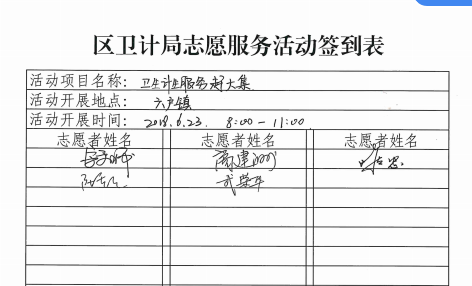 区卫计局志愿服务活动签到表
活动项目名称：卫生计生服务赶大集
活动开展地点：六户镇
活动开展时间：2018.6.23. 8:00-11:00
志愿者姓名 志愿者姓名 志愿者姓名